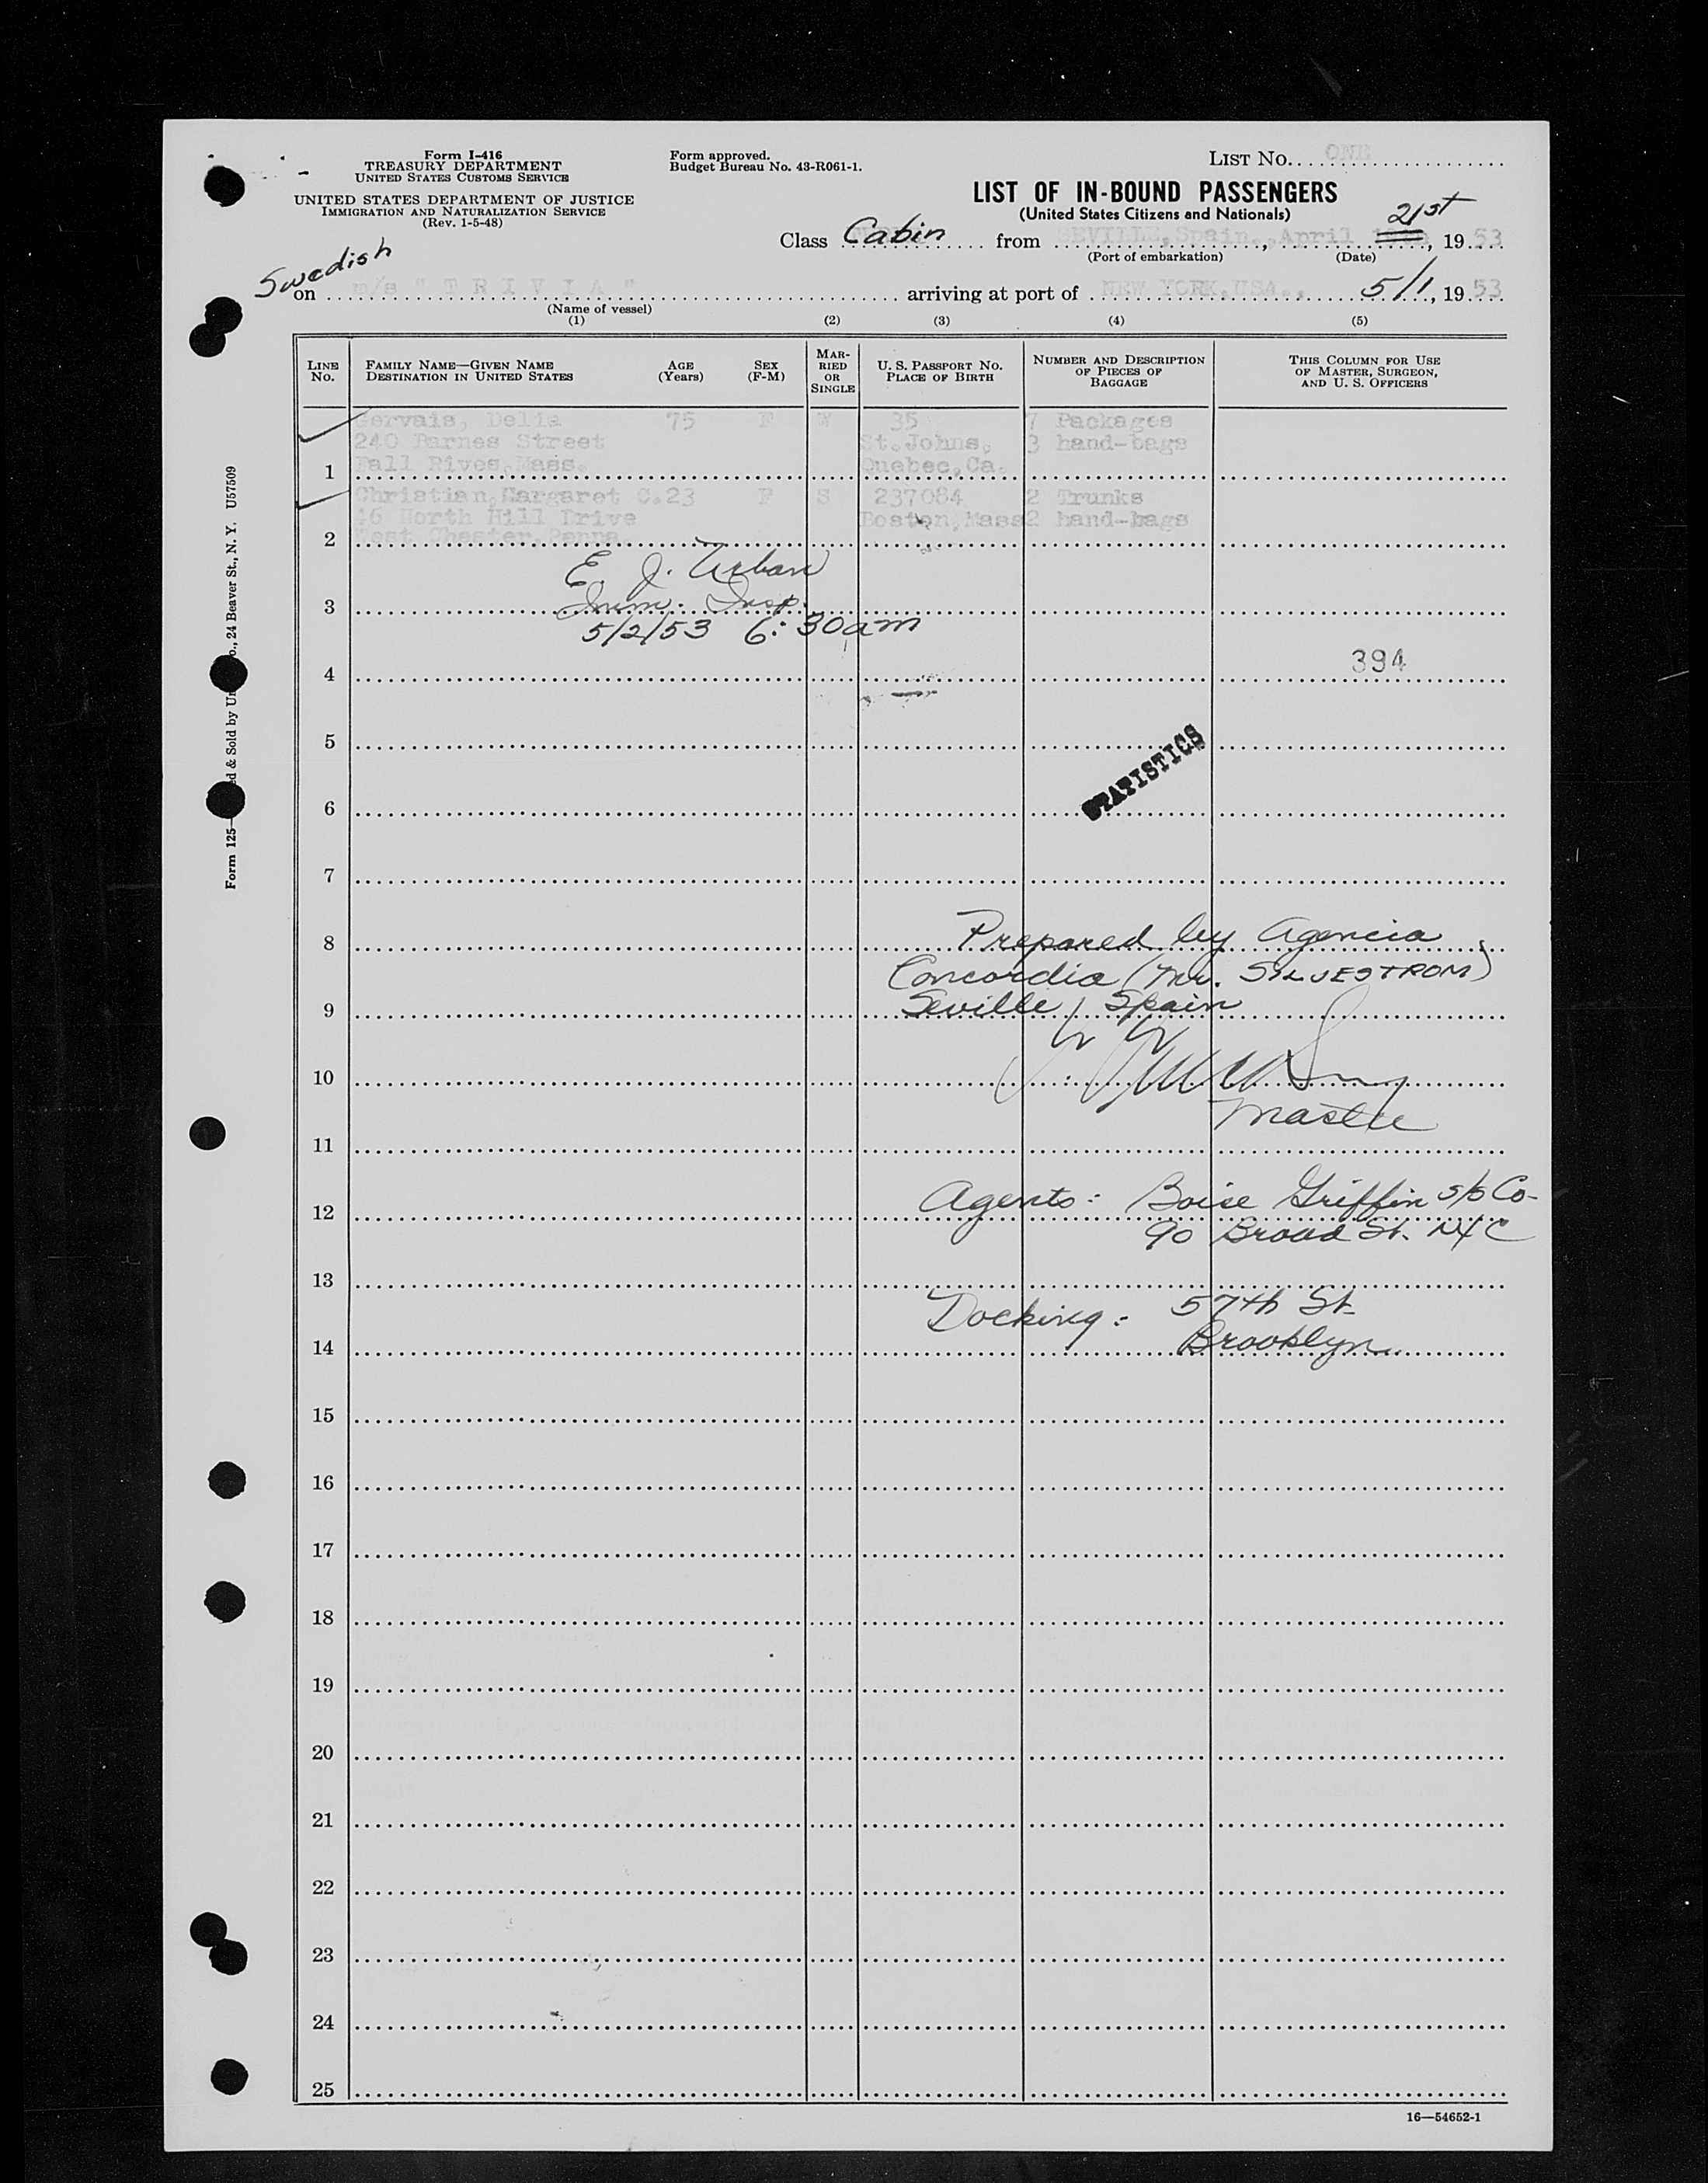 Form I-416
TREASURY DEPARTMENT
UNITED STATES CUSTOMS SERVICE
UNITED STATES DEPARTMENT OF JUSTICE
IMMIGRATION AND NATURALIZATION SERVICE
(Rev. 1-5-48)
Form approved.
Budget Bureau No. 43-R061-1.
LIST NO. ONE
LIST OF IN-BOUND PASSENGERS
(United States Citizens and Nationals)
Class Cabin from SEVILLE, Spain., April 21st, 1953
(Port of embarkation) (Date)
Swedish
on m/s "TRIVIA" arriving at port of NEW YORK, USA., 5/1, 1953
(Name of vessel)
(1) (2) (3) (4) (5)
LINE NO.
FAMILY NAME—GIVEN NAME
DESTINATION IN UNITED STATES
AGE (Years)
SEX (F-M)
MARRIED OR SINGLE
U. S. PASSPORT NO.
PLACE OF BIRTH
NUMBER AND DESCRIPTION OF PIECES OF BAGGAGE
THIS COLUMN FOR USE OF MASTER, SURGEON, AND U. S. OFFICERS
Gervais, Delia 75 F W 35 7 Packages
240 Barnes Street St.Johns, 3 hand-bags
1 Fall Rives, Mass. Quebec, Ca.
Christian, Margaret C. 23 F S 237084 2 Trunks
46 North Hill Drive Boston, Mass 2 hand-bags
2 West Chester, Penna.
E. J. Urban
3 Imm. Insp.
5/2/53 6:30am
4 394
5
STATISTICS
6
7
8 Prepared by Agencia
Concordia (Mr. SILJESTROM)
9 Seville, Spain
10
Master
11
12 Agents: Boise Griffin s/s Co-
90 Broad St. NYC
13
Docking: 57th St.
14 Brooklyn
15
16
17
18
19
20
21
22
23
24
25
16—54652-1
Form 125— ed & Sold by Un o., 24 Beaver St., N. Y. U57509